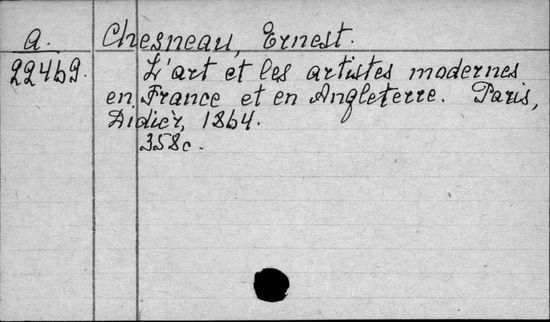 a. Chesneau, Ernest.
22469. L'art et les artistes modernes
en France et en Angleterre. Paris,
Didier, 1864.
358c.